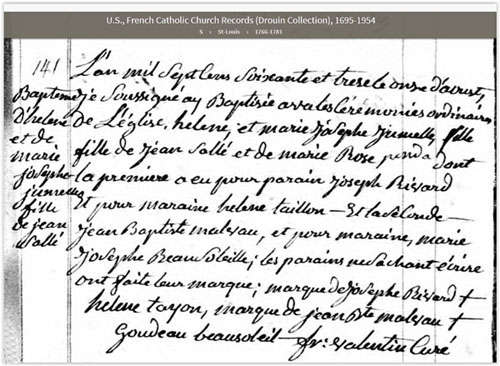 U.S., French Catholic Church Records (Drouin Collection), 1695-1954
S › St-Louis › 1766-1781
141
Bapteme
D'helene
et de
marie
josephe
jumelles
fille
de jean
Sallé
L'an mil Sept Cens Soixante et trese le onse d'aoust,
je Soussigné ay Baptisée avec les Cérémonies ordinaires
De L'église, helene, et marie Josephe Jumelles, fille
fille de Jean Sallé et de marie Rose panda Dont
la premiere a eu pour parain Joseph Rivard
Et pour maraine helene taillon — Et la Seconde —
Jean Baptiste malveau, et pour maraine, marie
Josephe Beau Soleille; les parains ne Sachant écrire
ont faite leur marque; marque de Josephe Rivard +
helene tayon, marque de jean Bte malveau +
Goudeau beausoleil — fr: Valentin Curé